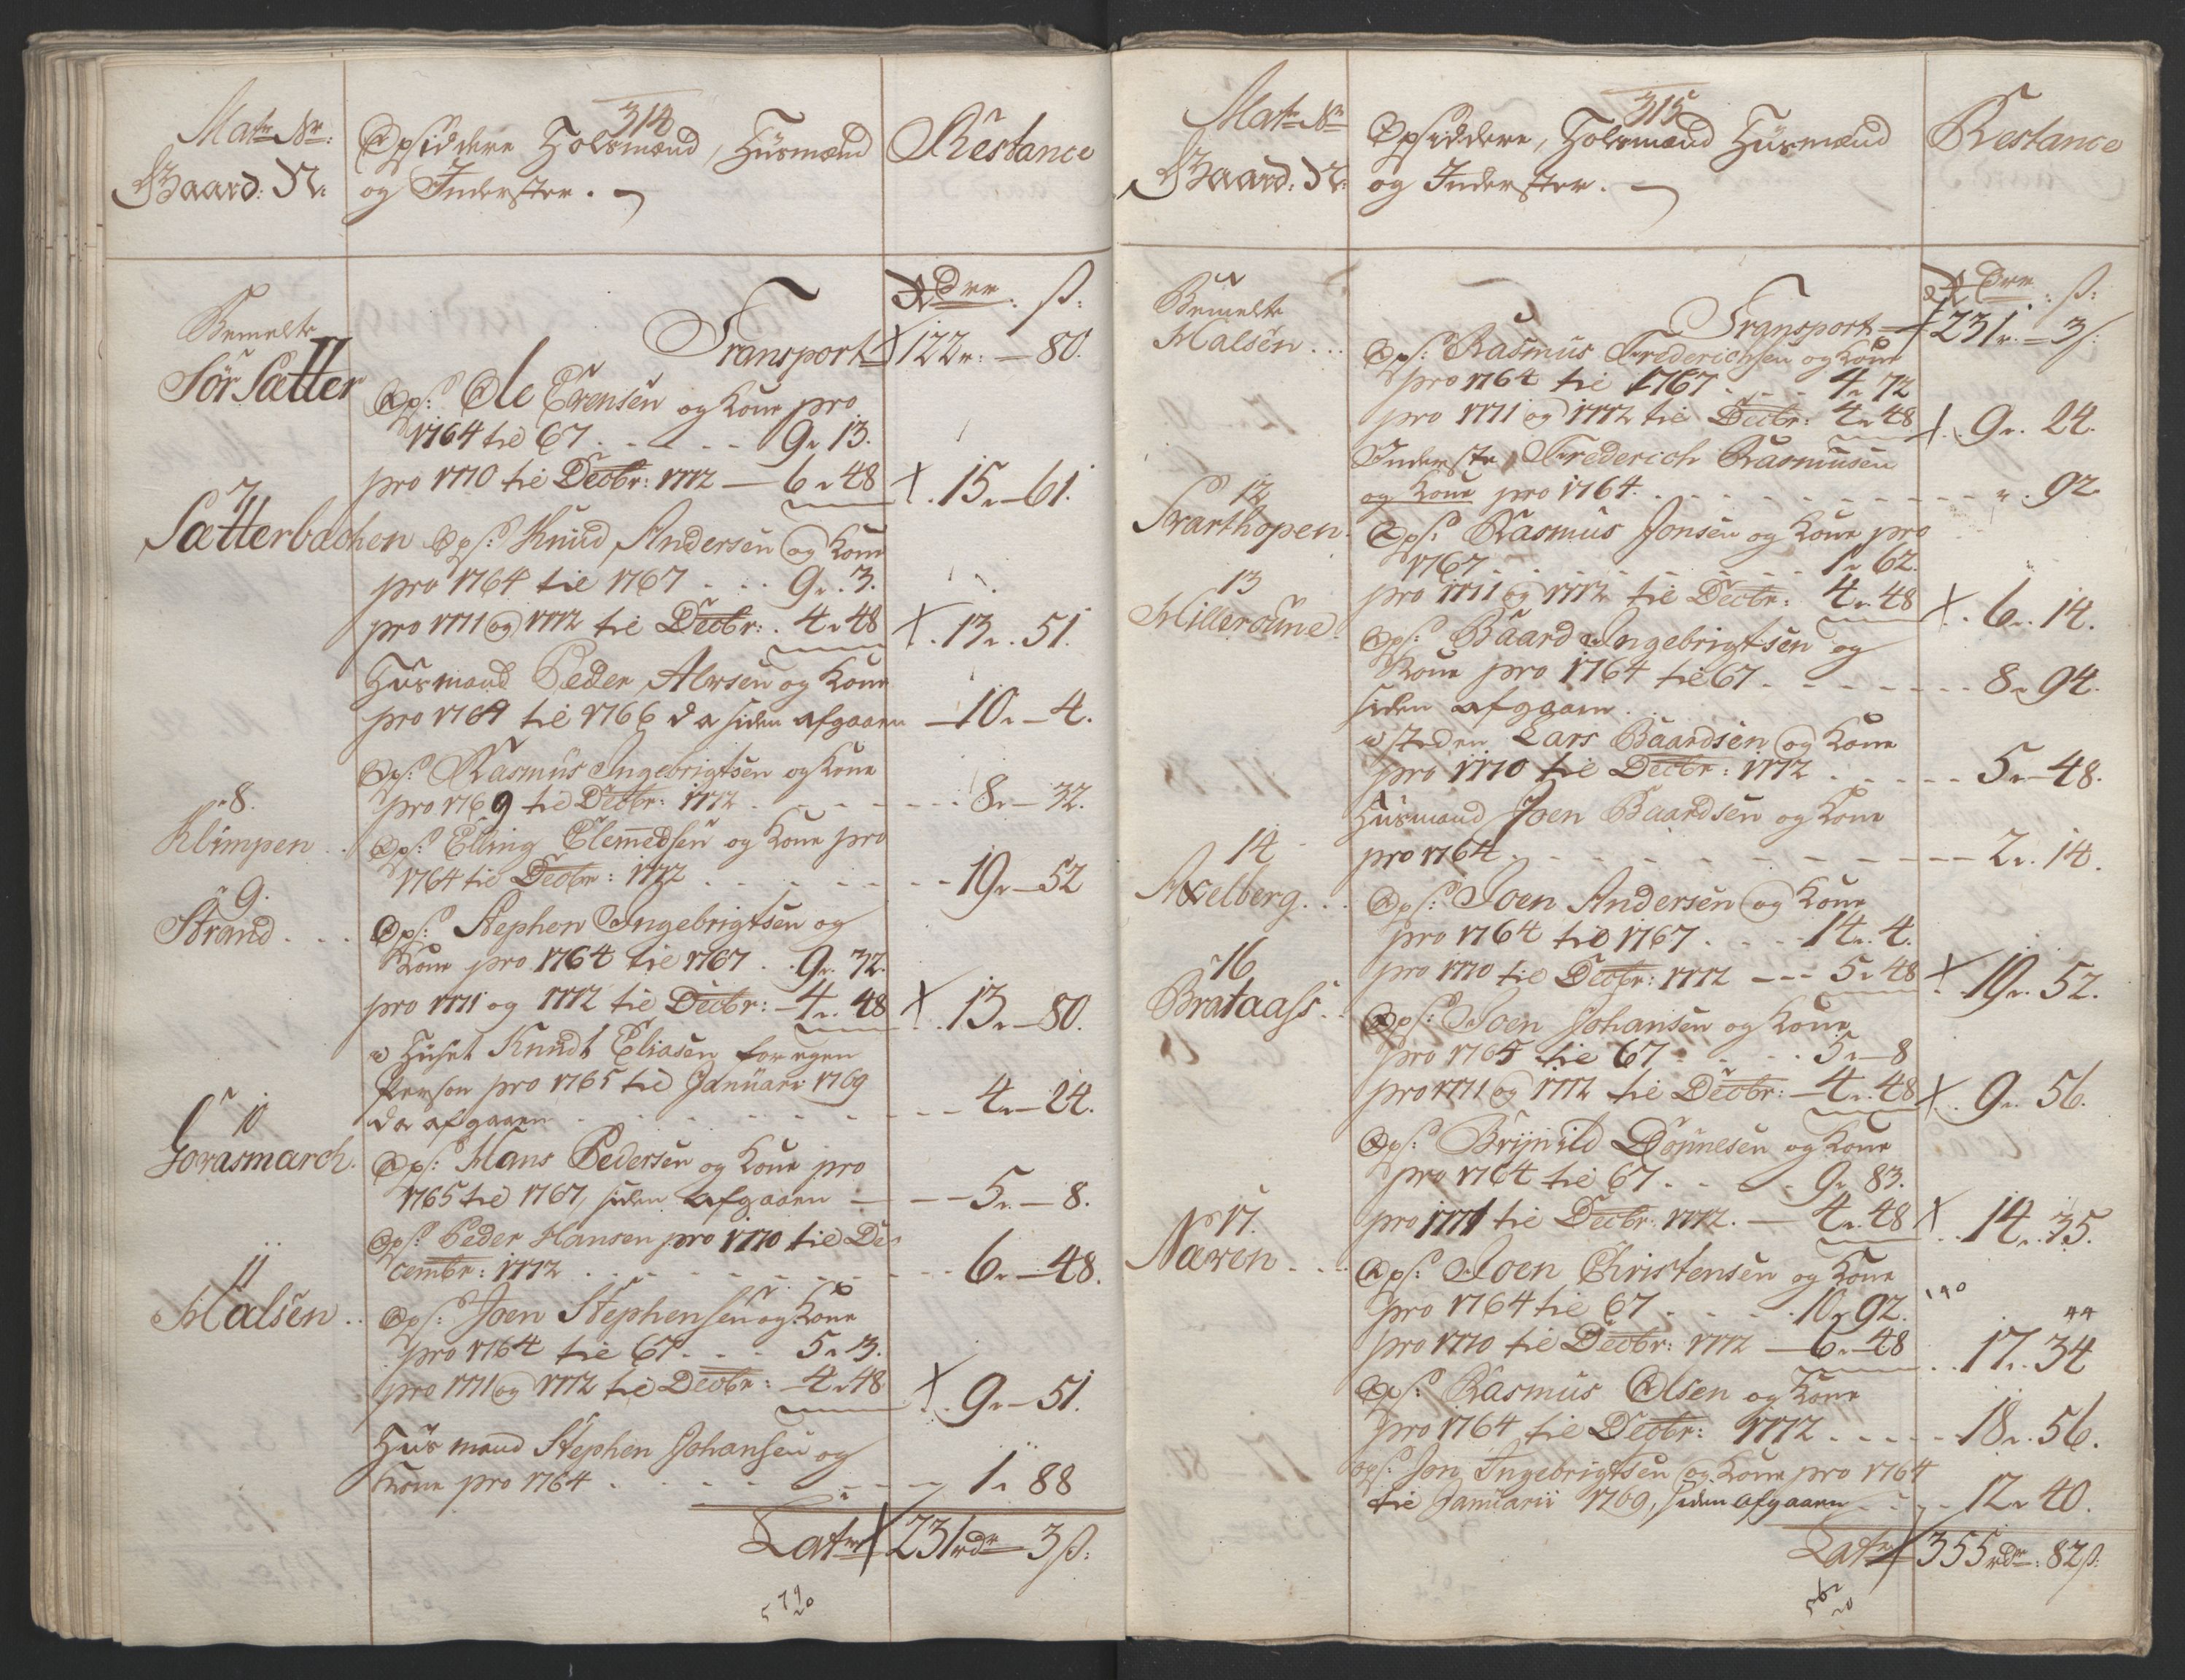 314
Matr: Nr:
Gaard: N:
Opsiddere Folsmænd, Huusmænd
og Inderster.
Restance
Rdr: ß:
Bemelte
Sör Sætter
Transport 122r: — 80.
Ops: Ole Erensen og Kone pro
1764 til 67 . . . . 9r 13.
pro 1770 til Decbr: 1772 — 6r 48 X. 15r — 61.
7
Sætterbachen
Ops: Knud Andersen og Kone
pro 1764 til 1767 . . . 9r. 3.
pro 1771 og 1772 til Decbr: . 4r 48 X. 13r. 51.
Huusmand Peder Alvsen og Kone
pro 1764 til 1766 da siden afgaaen — 10r — 4.
Ops: Rasmus Ingebrigtsen og Kone
pro 1769 til Decbr: 1772 . . . . 8r — 32.
8.
Klimpen
Ops: Elling Clemedsen og Kone pro
1764 til Decbr: 1772 . . . . 19r — 52
9.
Strand . . .
Ops: Stephen Ingebrigtsen og
Kone pro 1764 til 1767 . . 9r. 32.
pro 1771 og 1772 til Decbr: — 4r. 48 X. 13r — 80.
Huset Knudt Eliasen for egen
Person pro 1765 til Januari 1769
da afgaaen . . . . 4r — 24.
10
Gorasmarch.
Ops: Hans Pedersen og Kone pro
1765 til 1767, siden afgaaen — 5r. — 8.
Ops: Peder Hansen pro 1770 til De-
cembr: 1772 . . . . 6r. — 48.
11
Malsen . .
Ops: Joen Stephensen og Kone
pro 1764 til 67 . . . 5r 3.
pro 1771 og 1772 til Decbr: — 4r 48 X. 9r — 51.
Huusmand Stephen Johansen og
Kone pro 1764 . . . . 1r 88
Latr 231rdr — 3ß:
315
Matr: Nr
Gaard: N:
Opsiddere, Folsmænd Huusmænd
og Inderster.
Restance
Rdr: ß:
Bemelte
Malsen . . .
Transport 231r. — 3ß.
Ops: Rasmus Frederichsen og Kone
pro 1764 til 1767 . . . 4r 72
pro 1771 og 1772 til Decbr: 4r 48 X. 9r. 24.
Inderste Frederich Rasmusen
og Kone pro 1764. . . . . " . 92
12
Svarthopen.
Ops: Rasmus Jonsen og Kone pro
1767 . . . . 1r 62.
pro 1771 og 1772 til Decbr: 4r. 48 X. 6r. 14.
13
Milleroune.
Ops: Baard Ingebrigtsen og
Kone pro 1764 til 67 . . . . 8r 94.
siden afgaaen.
i steden Lars Baardsen og Kone
pro 1770 til Decbr: 1772 . . . . 5r — 48.
Huusmand Joen Baardsen og Kone
pro 1764 . . . . 2r. 14.
14
Axelberg. . .
Ops: Joen Andersen og Kone
pro 1764 til 1767 . . . . 14r. 4.
pro 1770 til Decbr: 1772 --- 5r 48 X. 19r. 52.
16
Brataass . .
Ops: Joen Johansen og Kone
pro 1765 til 67 . . . . 5r — 8
pro 1771 og 1772 til Decbr: — 4r. 48 X. 9r. 56.
Ops: Brynild Dönnesen og Kone
pro 1764 til 67 . . . . 9r. 83.
pro 1771 til Decbr: 1772. — 4r. 48 X. 14r. 35.
17.
Næren . . .
Ops: Joen Christensen og Kone
pro 1764 til 67 . . . . 10r 92.
44
pro 1770 til Decbr: 1772 — 6r. 48 . . 17r. 34
Ops: Rasmus Olsen og Kone
pro 1764 til Decbr: 1772 . . . . 18r. 56.
Ops: Jon Ingebrigtsen og Kone pro 1764
til Januarii 1769, siden afgaaen . . . 12r 40.
Latr 355rdr: 82ß: